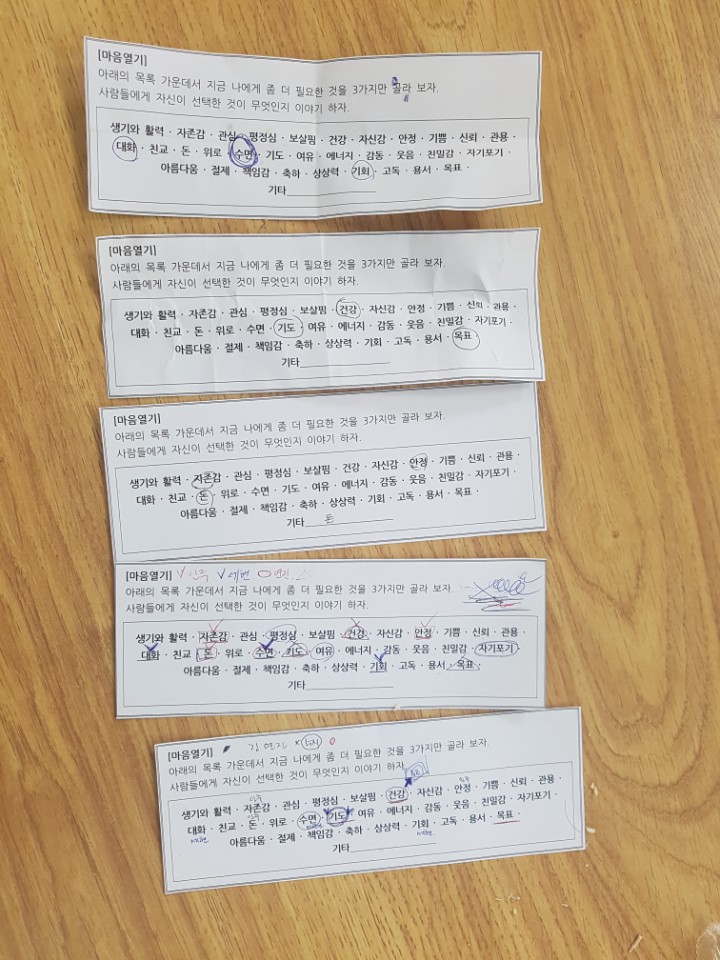 [마음열기]
아래의 목록 가운데서 지금 나에게 좀 더 필요한 것을 3가지만 골라 보자.
사람들에게 자신이 선택한 것이 무엇인지 이야기 하자.
생기와 활력 · 자존감 · 관심 · 평정심 · 보살핌 · 건강 · 자신감 · 안정 · 기쁨 · 신뢰 · 관용 ·
대화 · 친교 · 돈 · 위로 · 수면 · 기도 · 여유 · 에너지 · 감동 · 웃음 · 친밀감 · 자기포기 ·
아름다움 · 절제 · 책임감 · 축하 · 상상력 · 기회 · 고독 · 용서 · 목표 ·
기타
[마음열기]
아래의 목록 가운데서 지금 나에게 좀 더 필요한 것을 3가지만 골라 보자.
사람들에게 자신이 선택한 것이 무엇인지 이야기 하자.
생기와 활력 · 자존감 · 관심 · 평정심 · 보살핌 · 건강 · 자신감 · 안정 · 기쁨 · 신뢰 · 관용 ·
대화 · 친교 · 돈 · 위로 · 수면 · 기도 · 여유 · 에너지 · 감동 · 웃음 · 친밀감 · 자기포기 ·
아름다움 · 절제 · 책임감 · 축하 · 상상력 · 기회 · 고독 · 용서 · 목표 ·
기타
[마음열기]
아래의 목록 가운데서 지금 나에게 좀 더 필요한 것을 3가지만 골라 보자.
사람들에게 자신이 선택한 것이 무엇인지 이야기 하자.
생기와 활력 · 자존감 · 관심 · 평정심 · 보살핌 · 건강 · 자신감 · 안정 · 기쁨 · 신뢰 · 관용 ·
대화 · 친교 · 돈 · 위로 · 수면 · 기도 · 여유 · 에너지 · 감동 · 웃음 · 친밀감 · 자기포기 ·
아름다움 · 절제 · 책임감 · 축하 · 상상력 · 기회 · 고독 · 용서 · 목표 ·
기타 돈
[마음열기]
아래의 목록 가운데서 지금 나에게 좀 더 필요한 것을 3가지만 골라 보자.
사람들에게 자신이 선택한 것이 무엇인지 이야기 하자.
생기와 활력 · 자존감 · 관심 · 평정심 · 보살핌 · 건강 · 자신감 · 안정 · 기쁨 · 신뢰 · 관용 ·
대화 · 친교 · 돈 · 위로 · 수면 · 기도 · 여유 · 에너지 · 감동 · 웃음 · 친밀감 · 자기포기 ·
아름다움 · 절제 · 책임감 · 축하 · 상상력 · 기회 · 고독 · 용서 · 목표 ·
기타
[마음열기]
아래의 목록 가운데서 지금 나에게 좀 더 필요한 것을 3가지만 골라 보자.
사람들에게 자신이 선택한 것이 무엇인지 이야기 하자.
생기와 활력 · 자존감 · 관심 · 평정심 · 보살핌 · 건강 · 자신감 · 안정 · 기쁨 · 신뢰 · 관용 ·
대화 · 친교 · 돈 · 위로 · 수면 · 기도 · 여유 · 에너지 · 감동 · 웃음 · 친밀감 · 자기포기 ·
아름다움 · 절제 · 책임감 · 축하 · 상상력 · 기회 · 고독 · 용서 · 목표 ·
기타